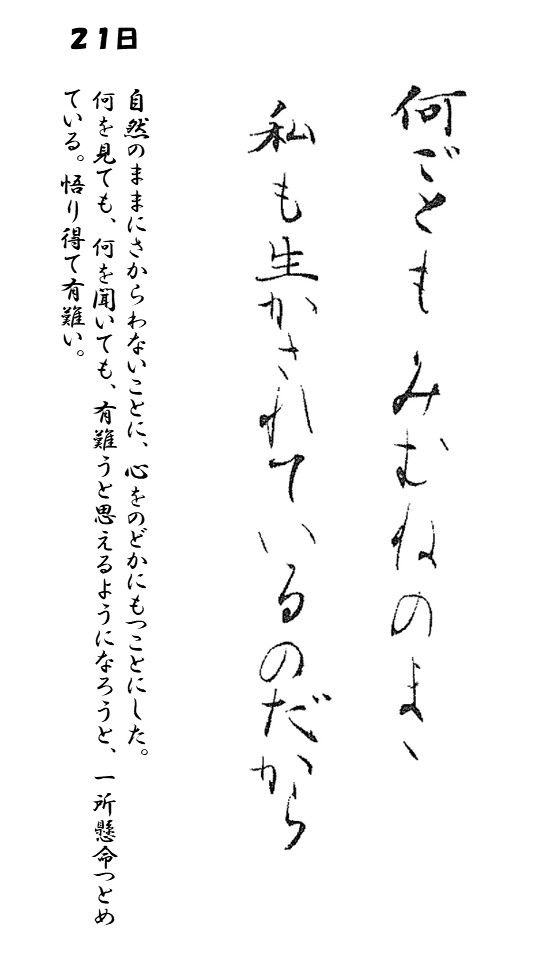 21日
何ごとも みむねのまゝ
私も生かされているのだから
自然のままにさからわないことに、心をのどかにもつことにした。
何を見ても、何を聞いても、有難うと思えるようになろうと、一所懸命つとめ
ている。悟り得て有難い。